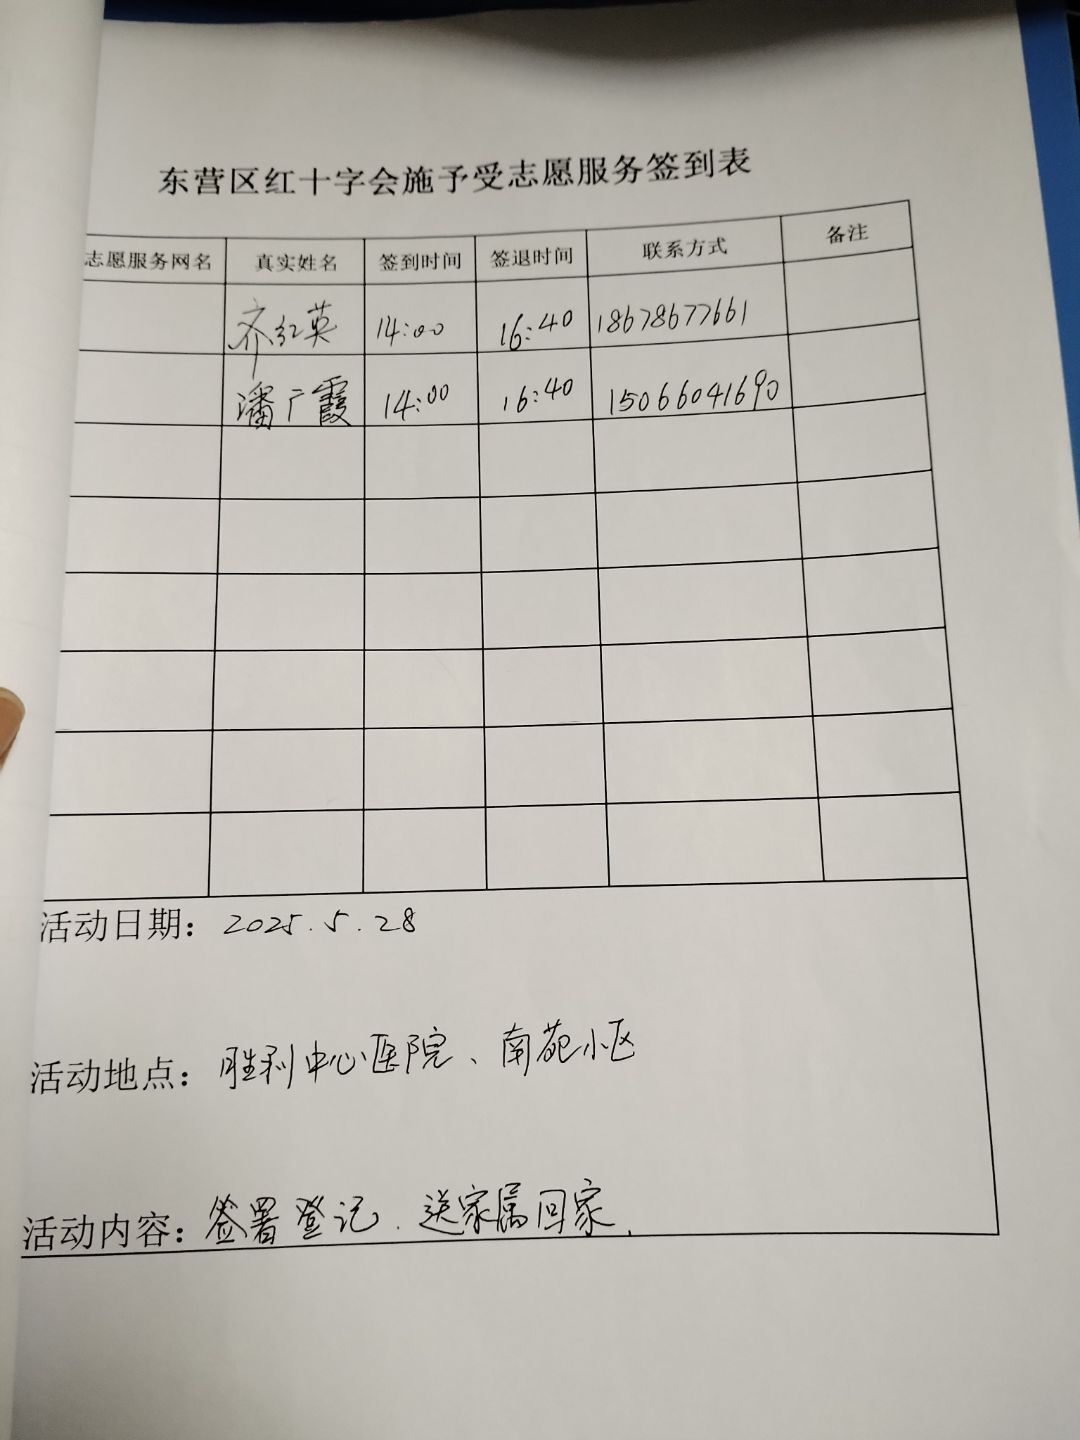 东营区红十字会施予受志愿服务签到表
志愿服务网名 真实姓名 签到时间 签退时间 联系方式 备注
齐红英 14:00 16:40 18678677661
潘广霞 14:00 16:40 15066041690
活动日期：2025.5.28
活动地点：胜利中心医院、南苑小区
活动内容：签署登记、送家属回家.